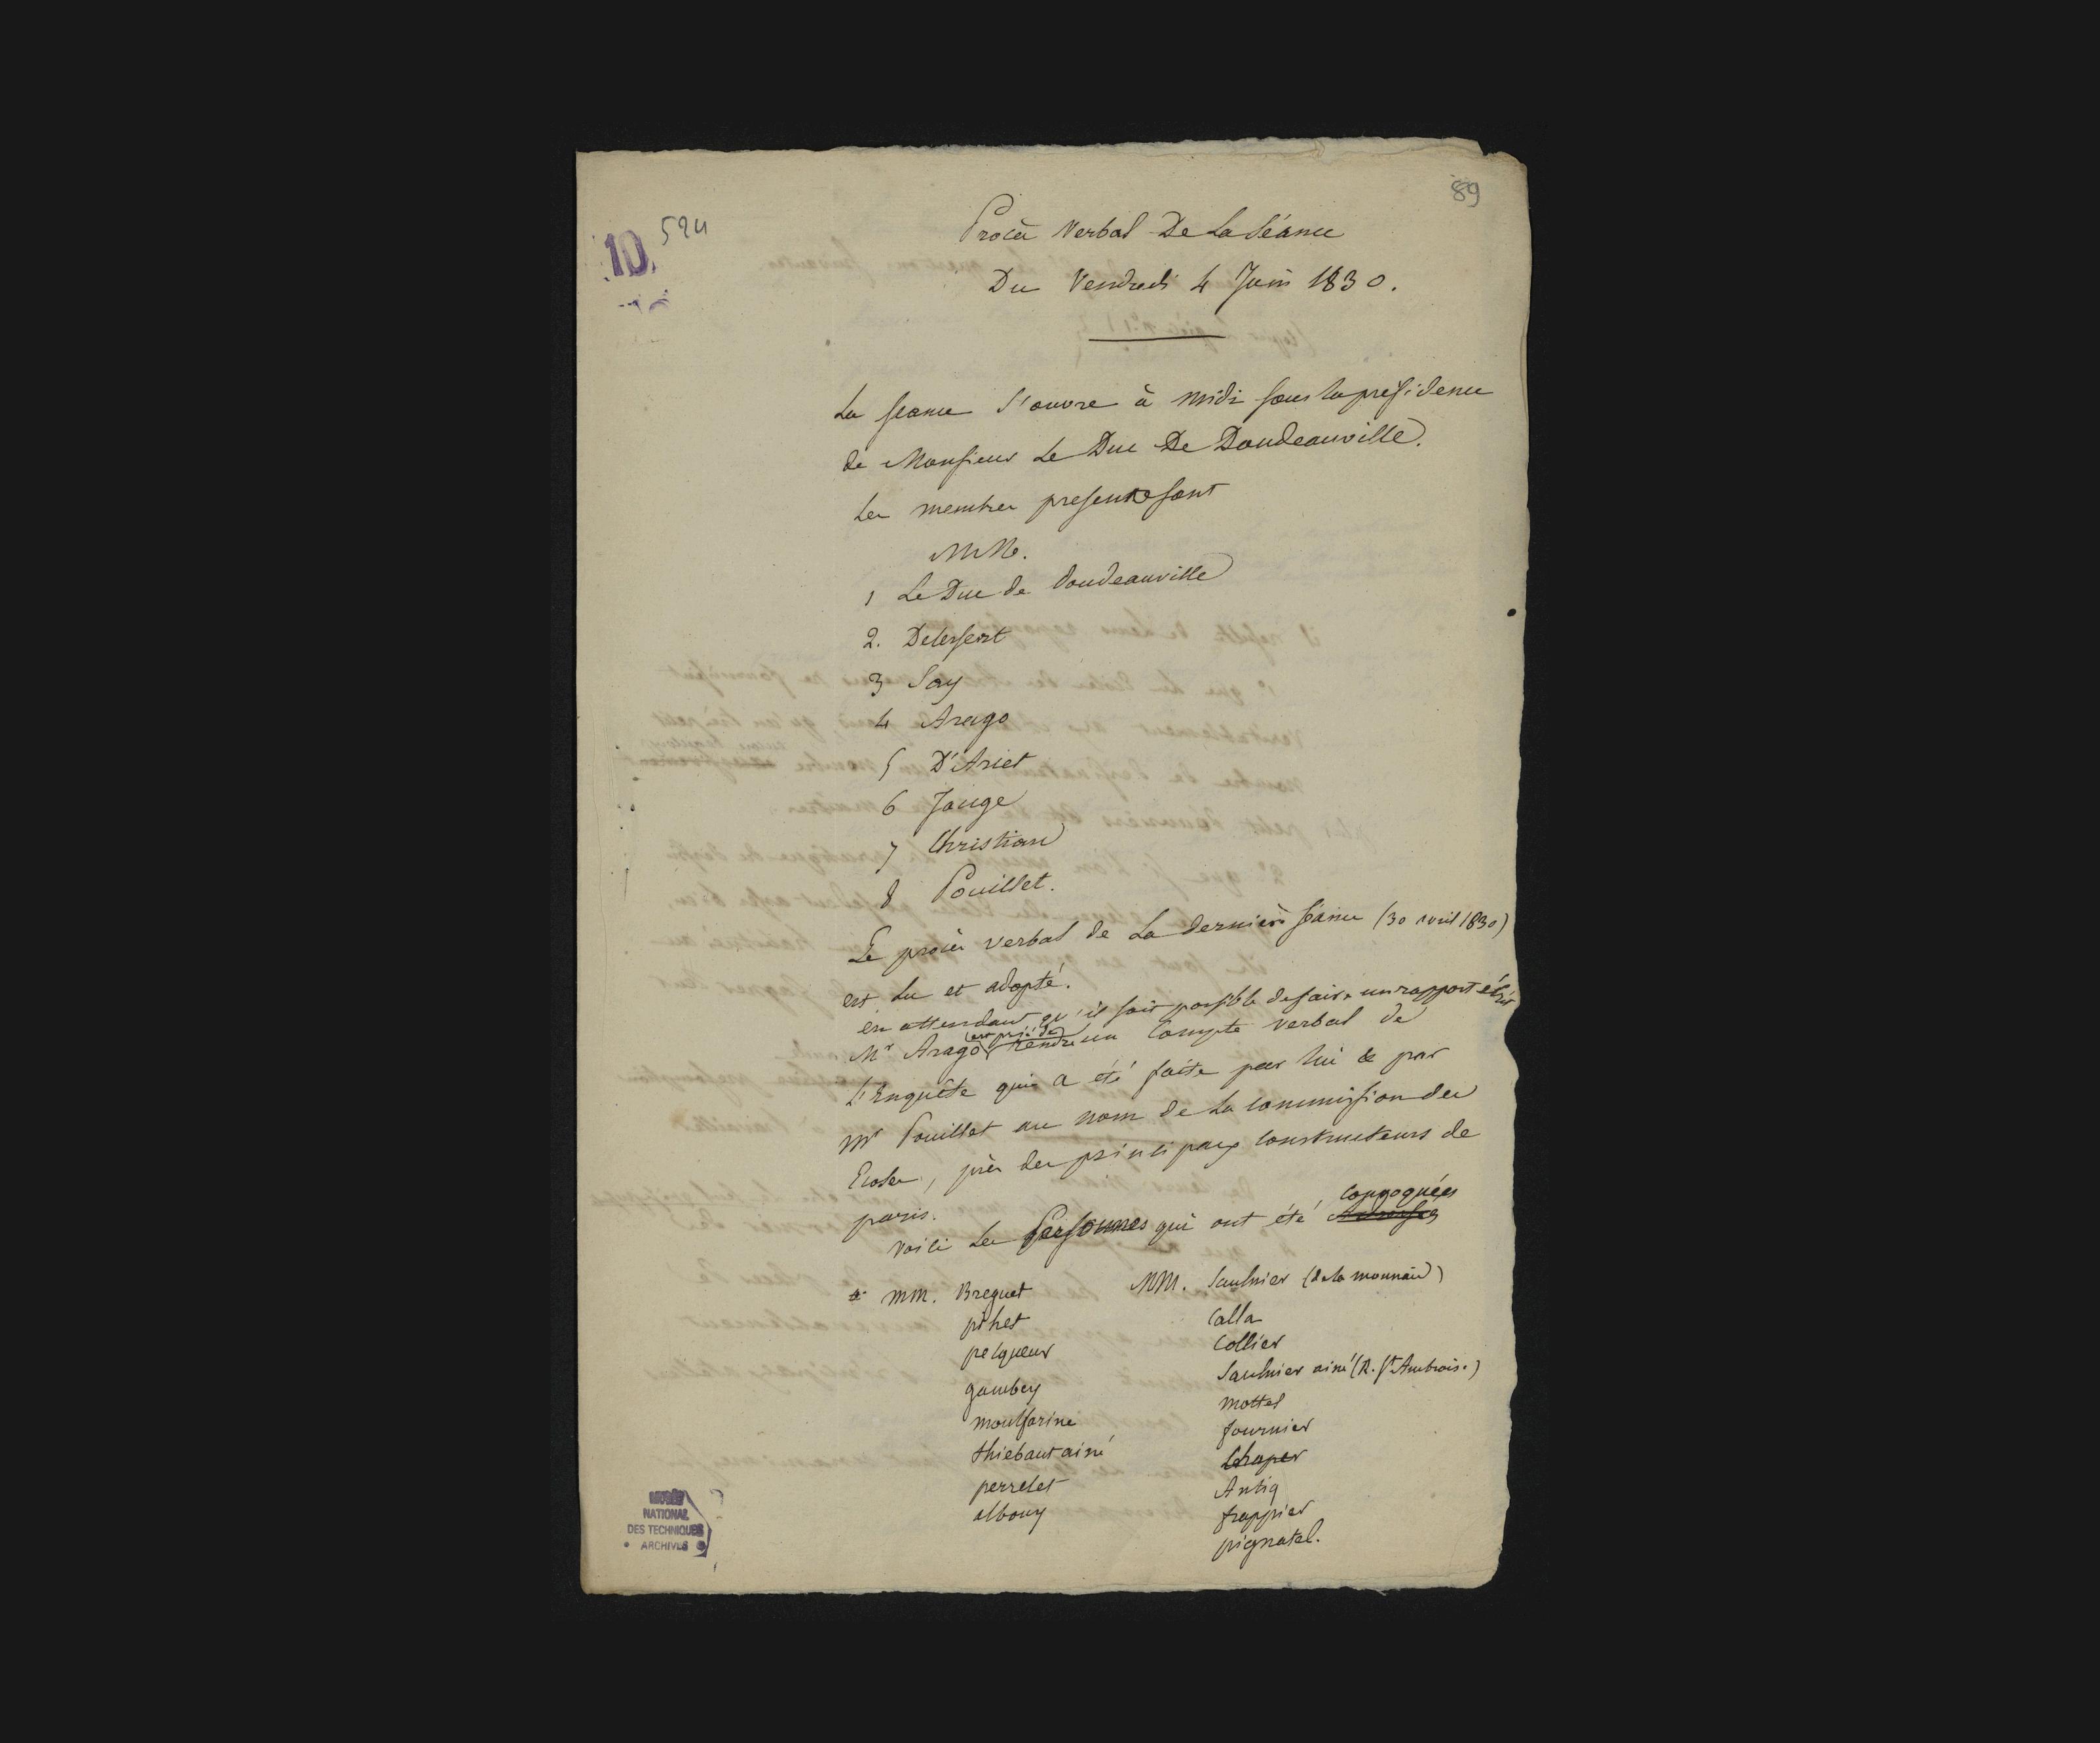 89
10
524
Procès Verbal De La Séance
Du Vendredi 4 Juin 1830.
La séance s'ouvre à midi sous la présidence
de Monsieur Le Duc De Doudeauville.
Les membres presents sont
MM.
1 Le Duc de Doudeauville
2. Delessert
3 Say
4 Arago
5 D'Arcet
6 Jauge
7 Christian
8 Pouillet.
Le procès verbal de La dernière séance (30 avril 1830)
est lu et adopté.
en attendant qu'il soit possible de faire un rapport écrit
Mr Arago est prié de rendre un Compte verbal de
L'Enquête qui a été faite par lui & par
Mr Pouillet au nom de La commission des
Ecoles, près des principaux Constructeurs de
paris.
Voici Les Personnes qui ont été convoquées
MM. Breguet
pihet
pecqueur
gambey
moulfarine
thiebaut ainé
perrelet
albouy
MM. Saulnier (de la monnaie)
Calla
Collier
Saulnier ainé (R. St Ambroise.)
mottet
fournier
Chaper
Antiq
frappier
pignatel.
MUSÉE
NATIONAL
DES TECHNIQUES
ARCHIVES